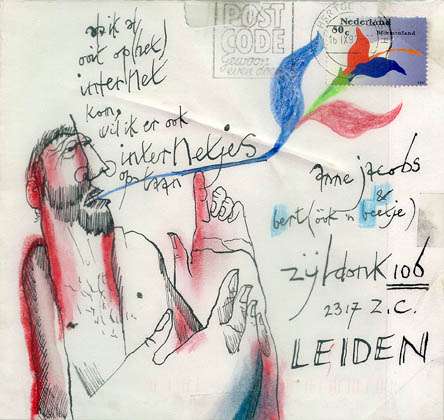 als ik al
ooit op(het)
interNet
kom,
wil ik er ook
interNetjes
opstaan
POST
CODE
Gewoon
even doen
Nederland
80c
Bloemenland
anne jacobs
&
bert (óók 'n beetje)
zijldonk 106
2317 Z.C.
LEIDEN